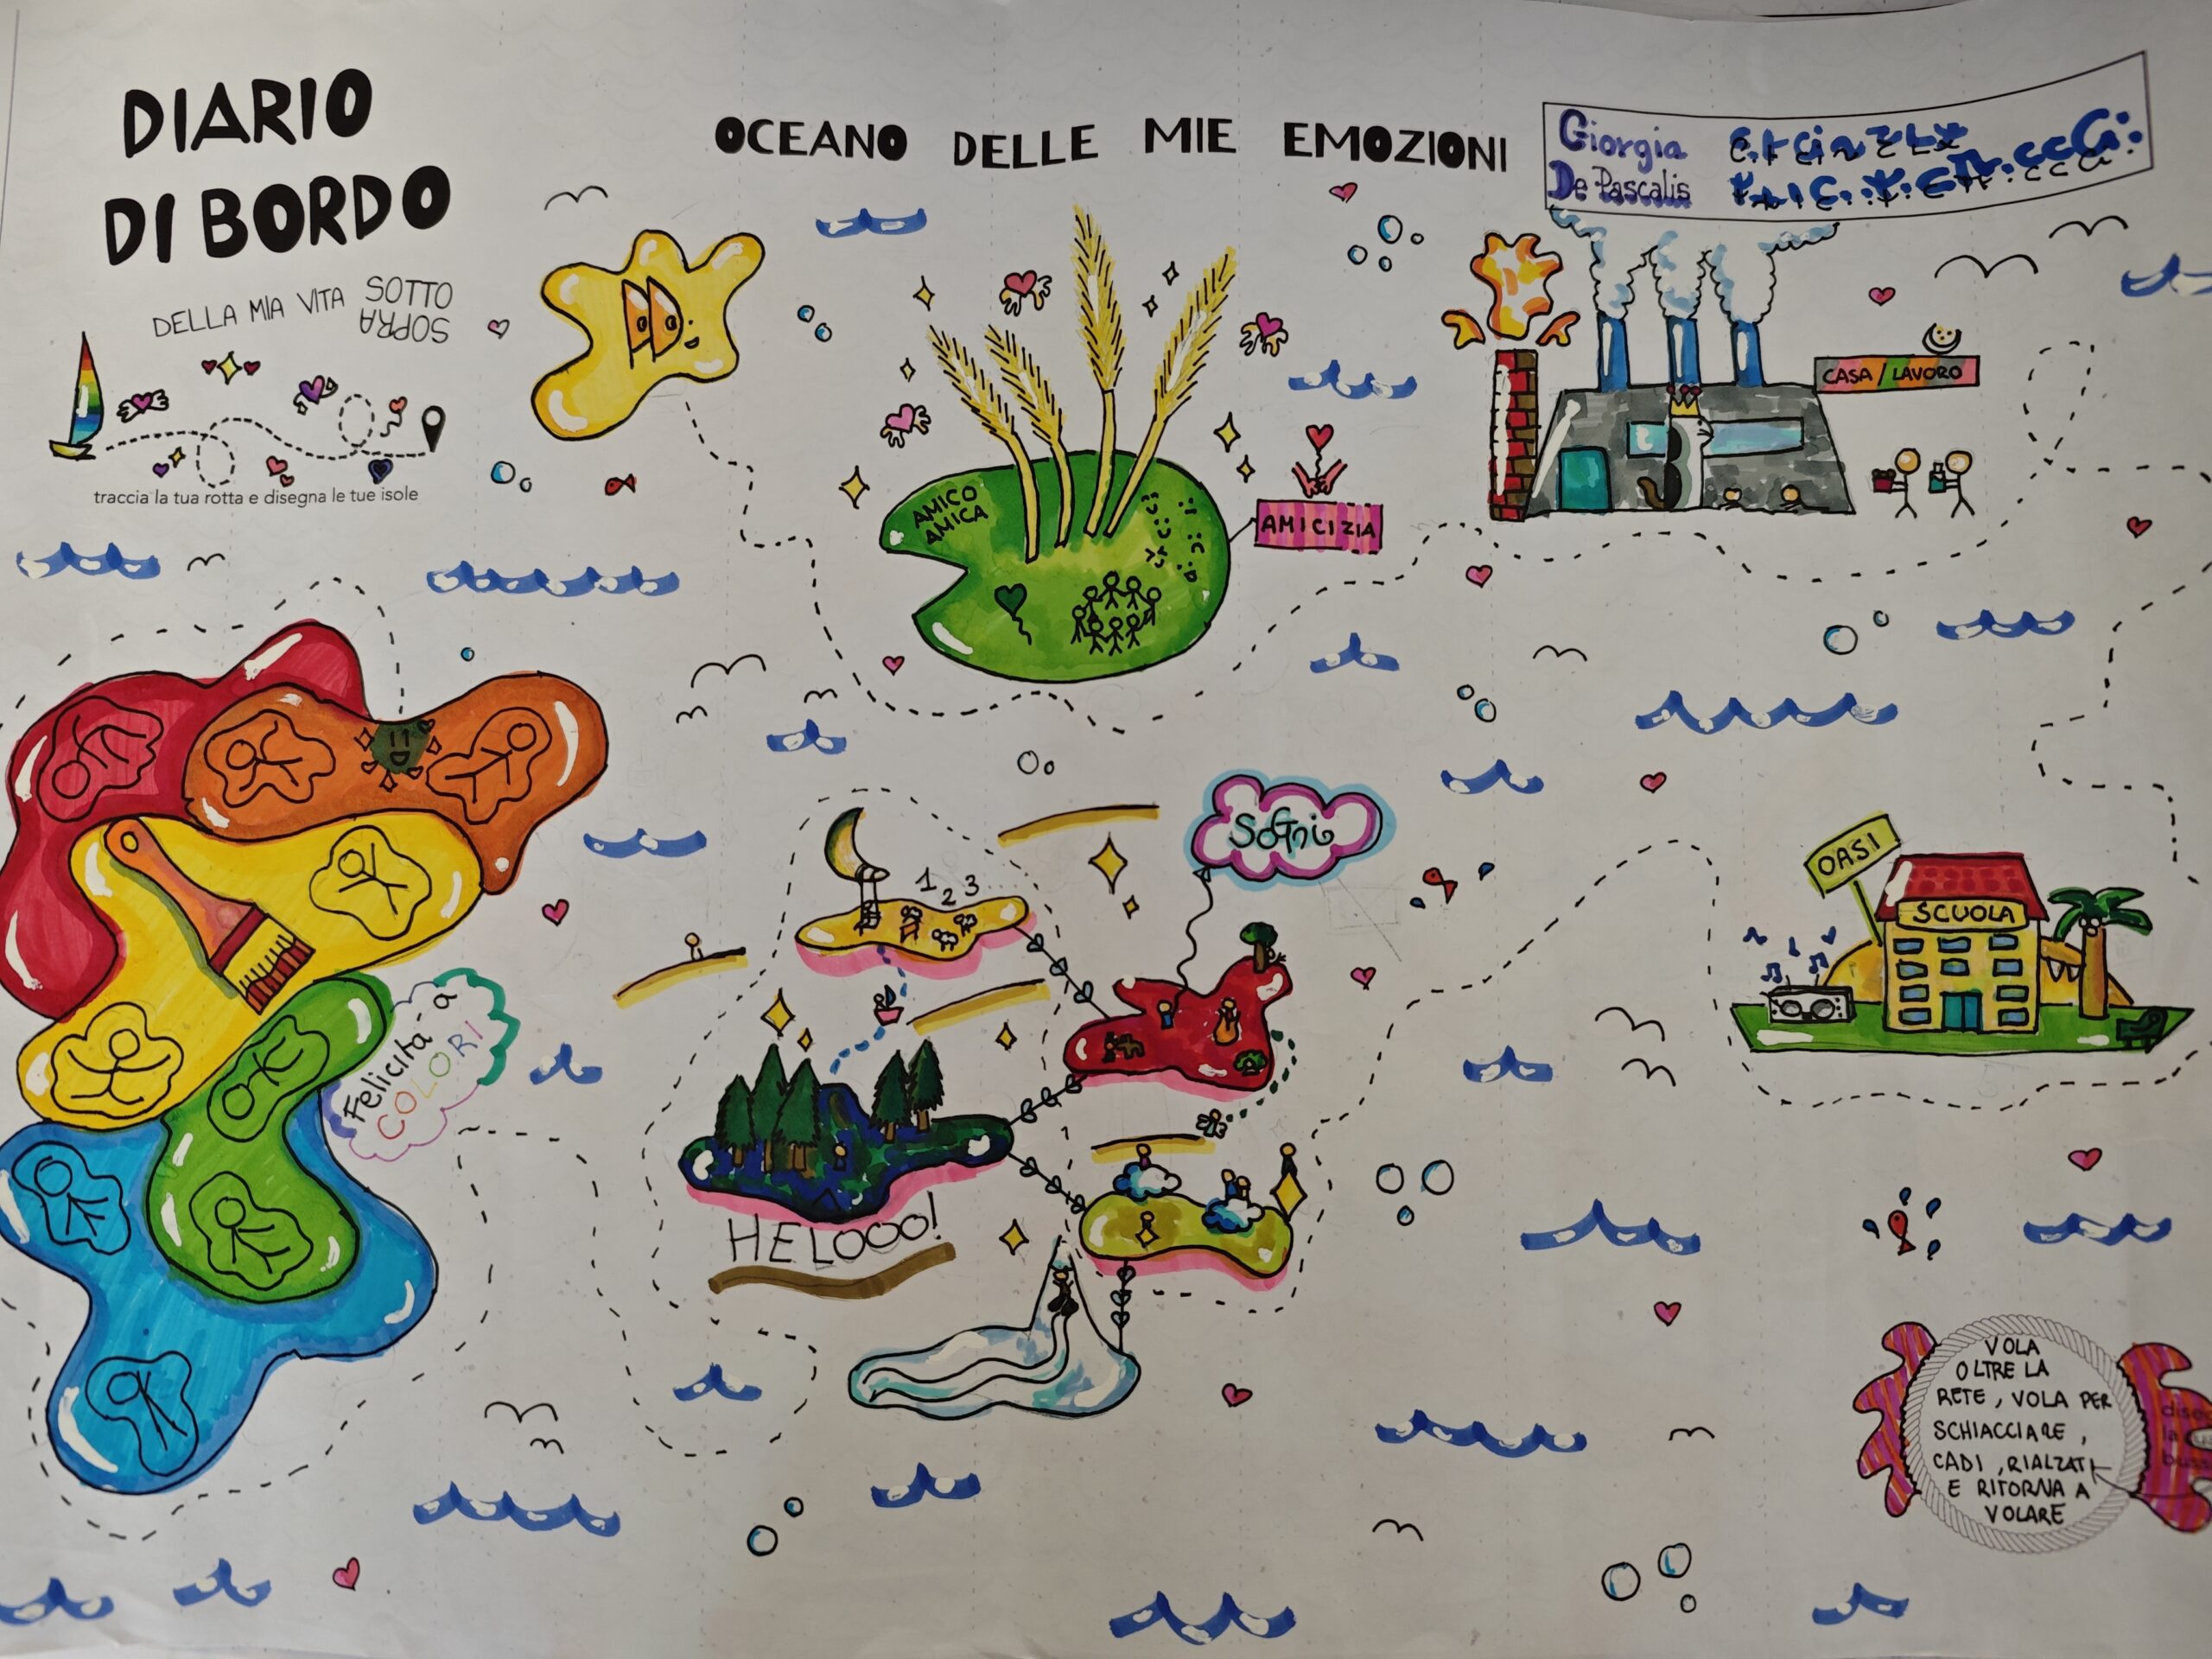 DIARIO
DI BORDO
DELLA MIA VITA SOTTO
SOPRA
traccia la tua rotta e disegna le tue isole
OCEANO DELLE MIE EMOZIONI
Giorgia
De Pascalis
AMICO
AMICA
AMICIZIA
CASA/LAVORO
Felicità a
COLORI
1 2 3
SOGNi
HELOOO!
OASI
SCUOLA
VOLA
OLTRE LA
RETE, VOLA PER
SCHIACCIARE,
CADI, RIALZATI
E RITORNA A
VOLARE